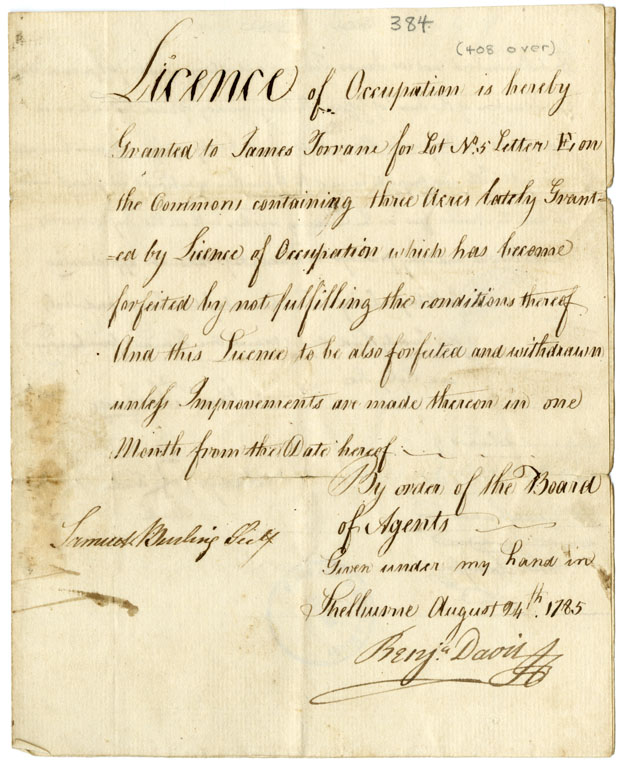 384
(408 over)
Licence of Occupation is hereby
Granted to James Torrane for Lot No. 5 Letter E, on
the Commons containing three Acres lately Grant-
-ed by Licence of Occupation which has become
forfeited by not fulfilling the conditions thereof
And this Licence to be also forfeited and withdrawn
unless Improvements are made thereon in one
Month from the Date hereof
By order of the Board
of Agents
Samuel Burling Secty
Given under my hand in
Shelburne August 24th. 1785
Benja Davis